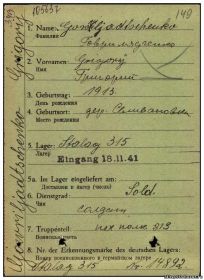 105237
149
1. Name:
Фамилия
2. Vorname: Grigorij
Имя Григорий
3. Geburtstag: 1913.
День рождения
4. Geburtsort: дер. Селивановка
Место рождения
5. Lager: Stalag 315
Лагерь
Eingang 18.11.41
5a. Ins Lager eingeliefert am:
Доставлен в лагерь (число)
6. Dienstgrad: Sold
Чин солдат
7. Truppenteil: пех. полк 313
Воинская часть
8. Nr. der Erkennungsmarke des deutschen Lagers:
Номер военнопленного в германском лагере
Stalag 315 Nr. 14892